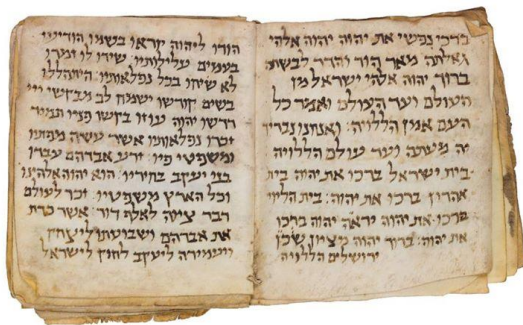 ברכי נפשי את יהוה יהוה אלהי
גדלתה מאד הוד והדר לבשתה
ברוך יהוה אלהי ישראל מן
העולם ועד העולם ואמר כל
העם אמן הללויה ואנחנו נברך
יה מעתה ועד עולם הללויה
בית ישראל ברכו את יהוה בית
אהרון ברכו את יהוה: בית הלוי
ברכו את יהוה יראי יהוה ברכו
את יהוה: ברוך יהוה מציון שכן
ירושלים הללויה
הודו ליהוה קראו בשמו הודיעו
בעמים עלילותיו שירו לו זמרו
לא שיחו בכל נפלאותיו: התהללו
בשם קודשו ישמח לב מבקשי ייי
דרשו יהוה עוזו בקשו פניו תמיד
זכרו נפלאותיו אשר עשה מפתיו
ומשפטי פיו: זרע אברהם עבדיו
בני יעקב בחיריו: הוא יהוה אלהינו
בכל הארץ משפטיו: זכר לעולם
דבר ציוה לאלף דור: אשר כרת
את אברהם ושבועתו ליצחק
ויעמידה ליעקב לחוק לישראל